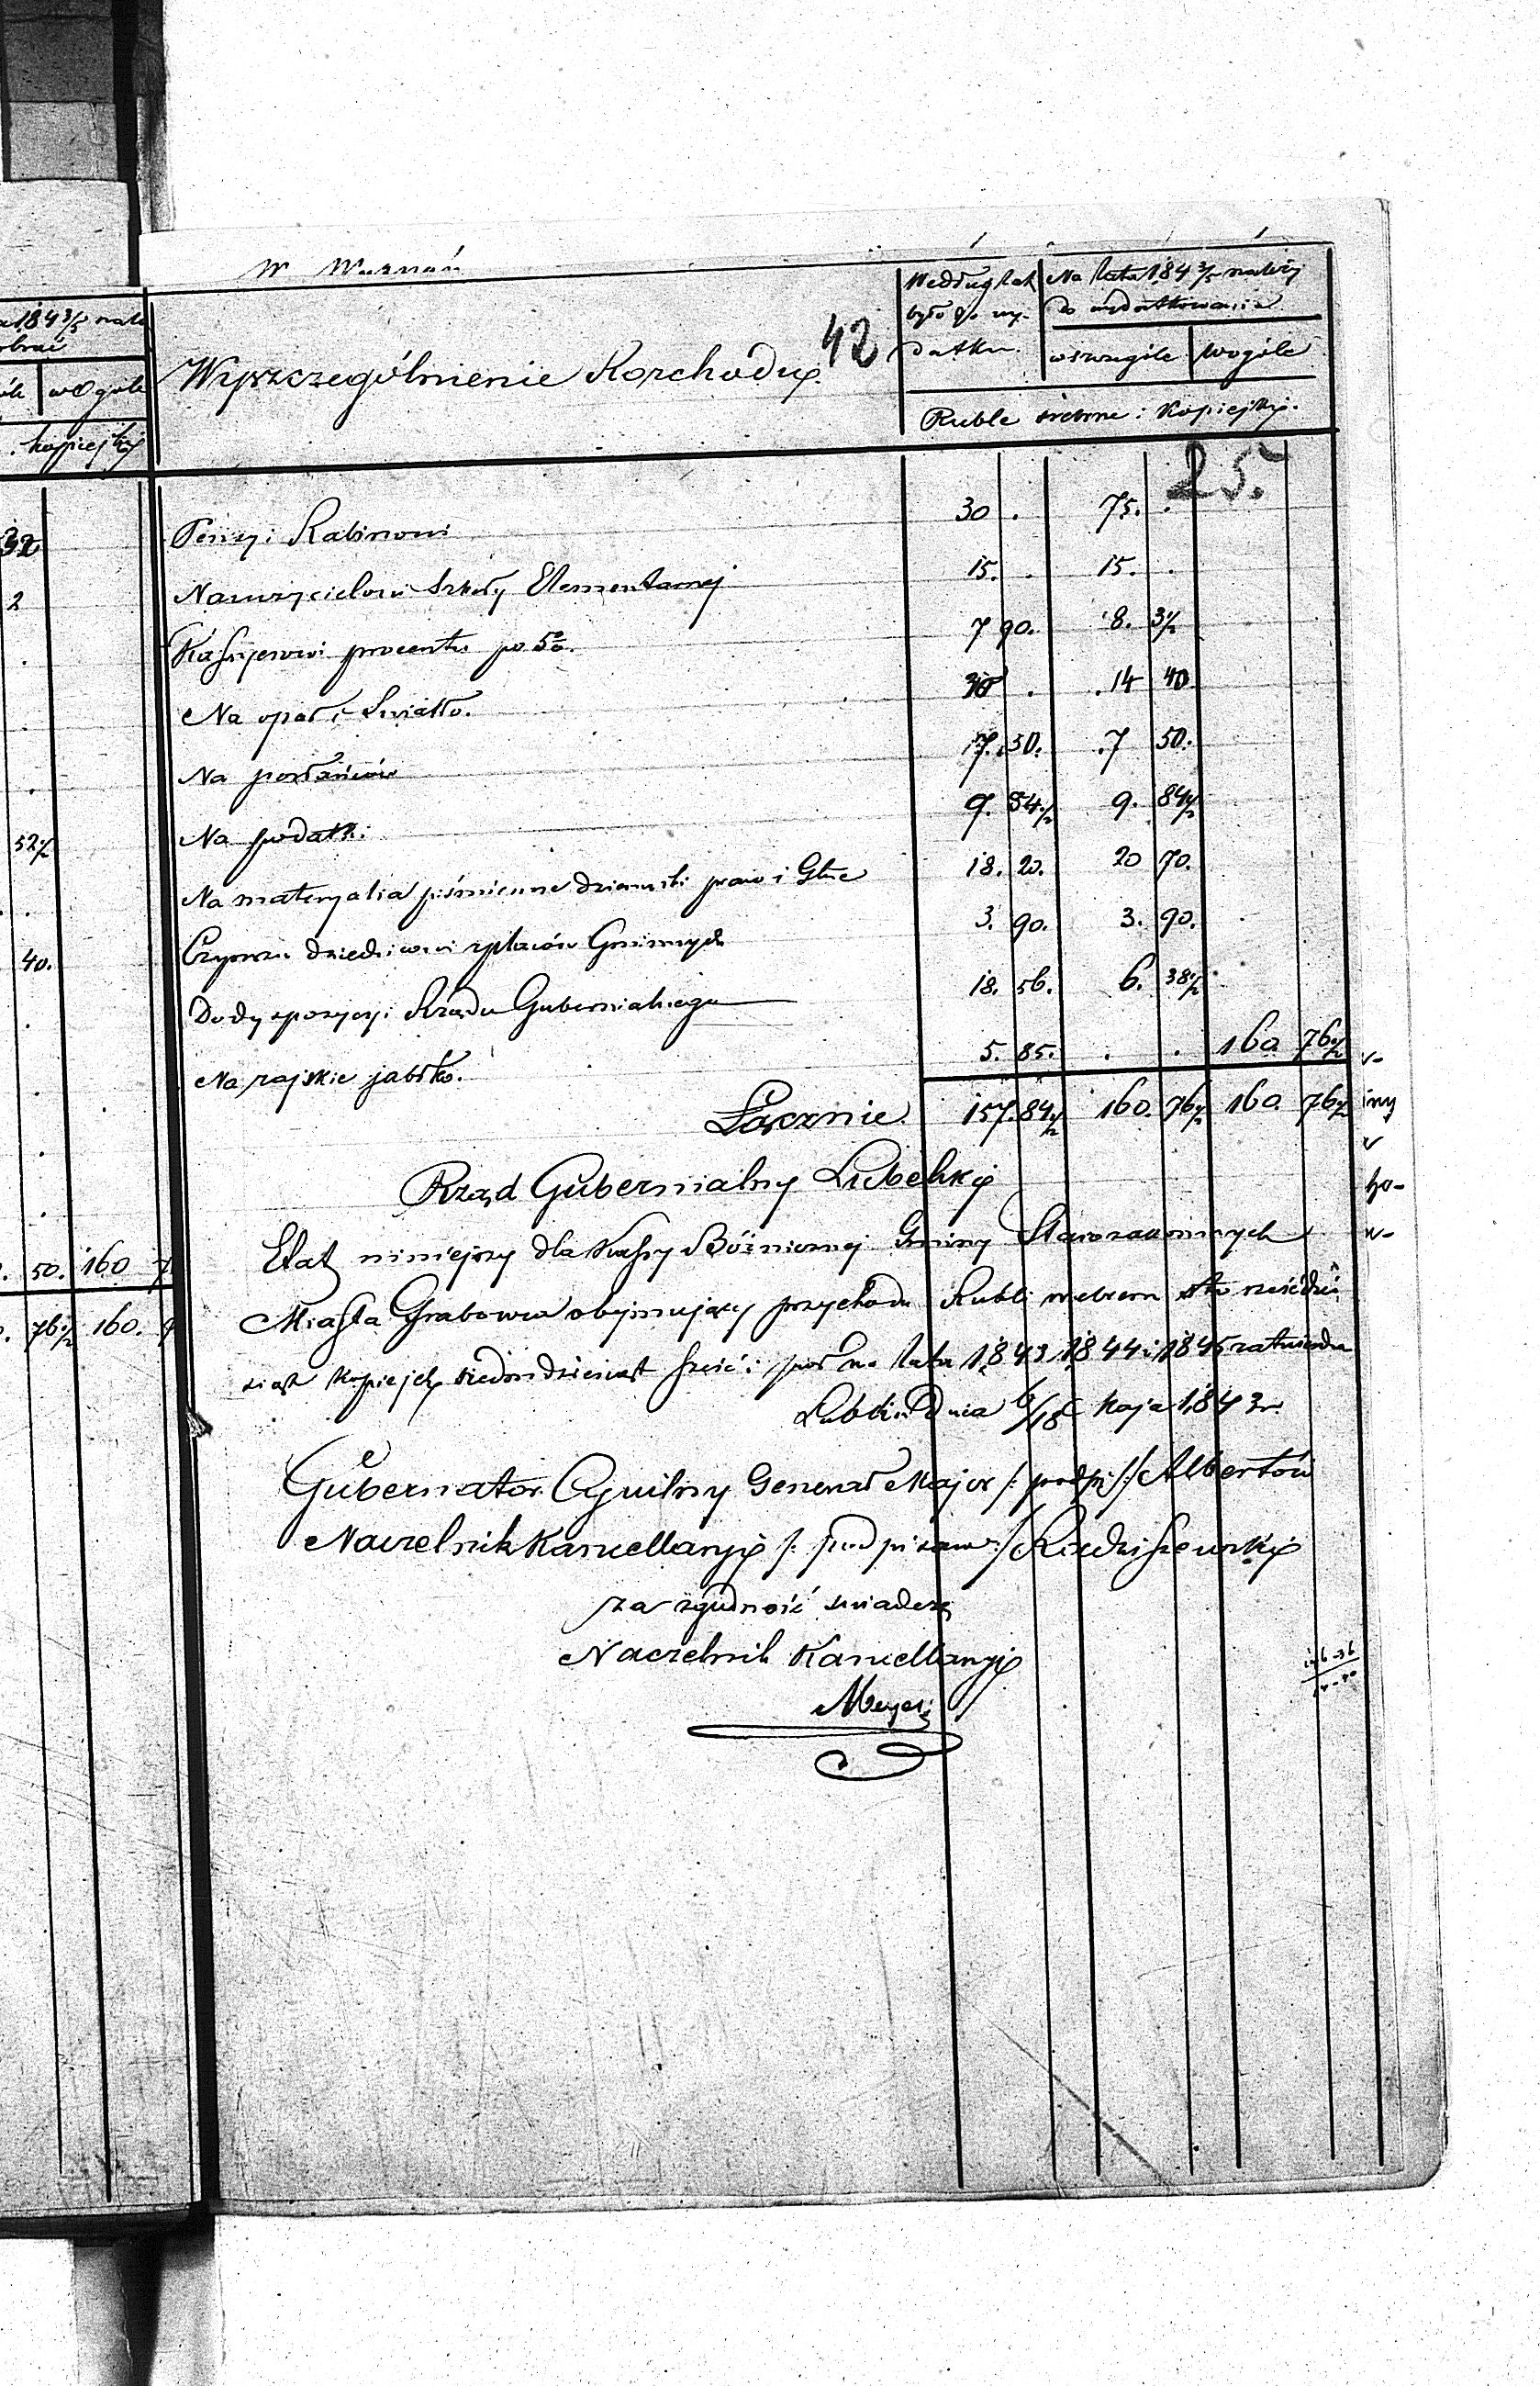 W
a 184 3/5 nale
wogóle
kopiejki
32
2
52 1/2
40.
50. 160 7
76 1/2 160. 7
42
Wyszczególnienie Rozchodu.
Według lat
było do wy-
datku.
Na lata 184 3/5 należy
do wydatkowania
wszczególe wogóle
Ruble srebrne i Kopiejki.
25.
Pensyi Rabinowi 30 . 75. .
Nauczycielowi Szkoły Elementarnej 15. . 15. .
Kassyerowi procentu po 5%. 7 90. 8. 3 1/2
Na opał i Swiatło. 30 . 14 40
Na posłańców 17. 50. 7 50.
Na podatki 9. 84 1/2 9. 84 1/2
Na materyalia piśmienne dzienniki praw i 18. 20. 20 70.
Czynszu dziedzicowi z placów Gminnych 3. 90. 3. 90.
Do dyspozycyi Rządu Gubernialnego 18. 56. 6. 38 1/2
Na rajskie jabłko. 5. 85. . . 160 76 1/2
Łącznie. 157. 84 1/2 160. 76 1/2 160. 76 1/2
Rząd Gubernialny Lubelski
Etat niniejszy dla Kassy Bóźnicznej Gminy Starozakonnych
Miasta Grabowca obejmujący przychodu Rubli srebrem sto sześćdzie
siąt Kopiejek siedmdziesiąt sześć i pół na lata 1843 1844 i 1845 zatwierdza
Lublin Dnia 6/18 Maja 1843 r.
Gubernator Cywilny Generał Major /: podpis :/ Albertów
Naczelnik Kancellaryi /: podpisano :/ Radziszewski
za zgodność swiadczę
Naczelnik Kancellaryi
Meyer